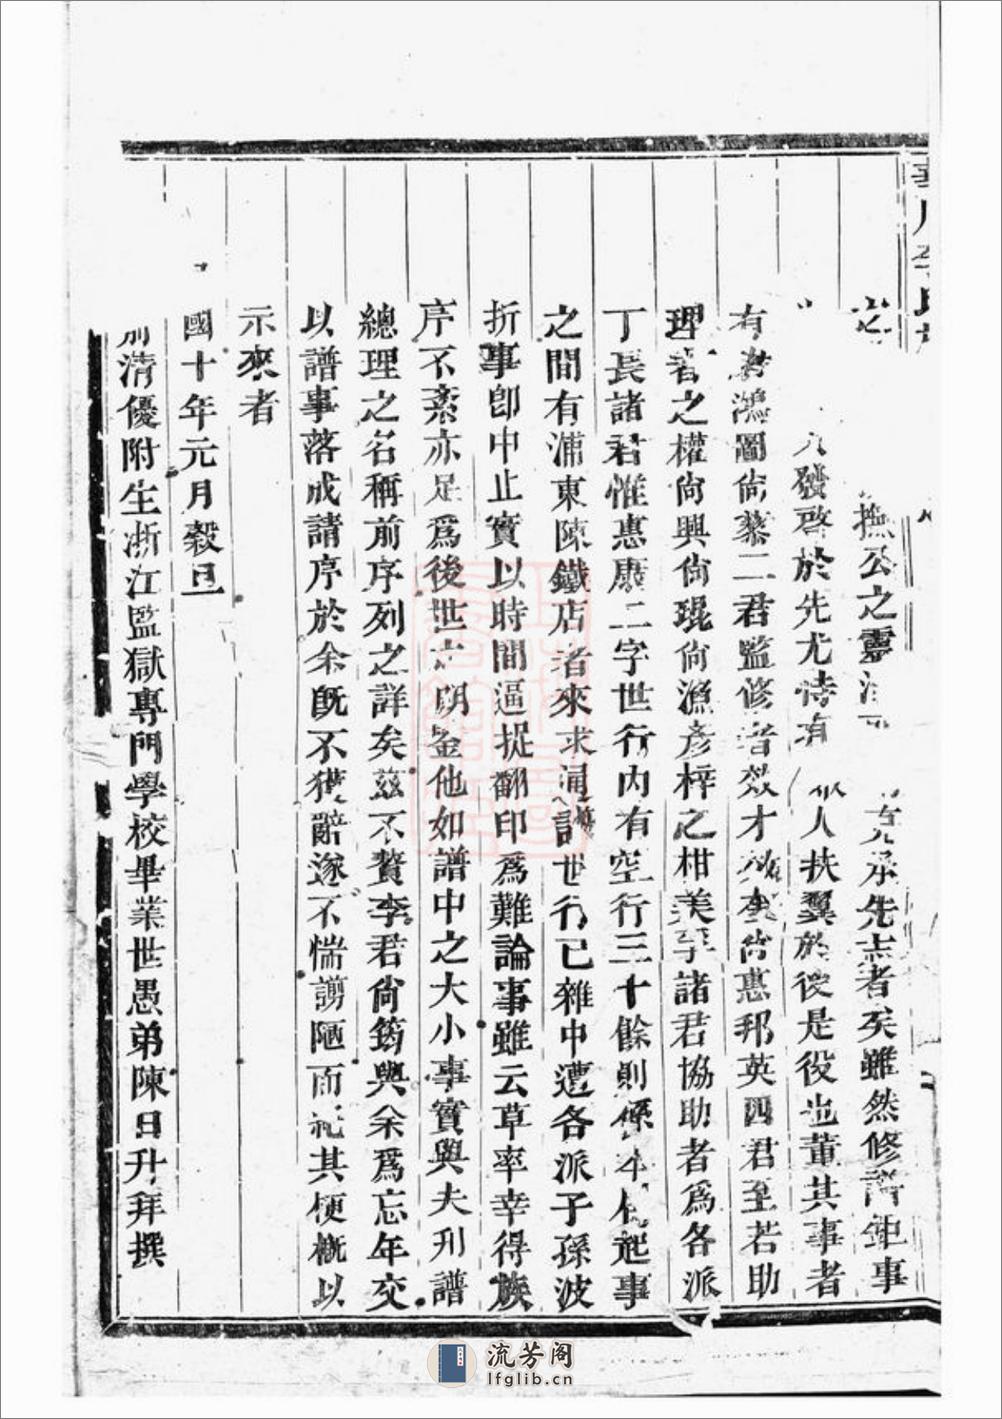 撫公之靈 克承先志者矣雖然修譜鉅事
發啓於先尤恃有 人扶翼於後是役也董其事者
有 鴻圖尙黎二君監修者效才 尙惠邦英四君至若助
理者之權尙興尙琨尙漁彥梓之相美至諸君協助者爲各派
丁長諸君惟惠康二字世行內有空行三十餘則係 起事
之間有浦東陳鐵店者來求 世行已雜中遭各派子孫波
折事卽中止實以時間逼捉翻印爲難論事雖云草率幸得族
序不紊亦足爲後世 朙 他如譜中之大小事實與夫刋譜
總理之名稱前序列之詳矣茲不贅李君尙筠與余爲忘年交
以譜事落成請序於余旣不獲辭遂不惴謭陋而 其梗槪以
示來者
國十年元月穀旦
淸優附生浙江監獄專門學校畢業世愚弟陳日升拜撰
流芳阁
lfglib.cn